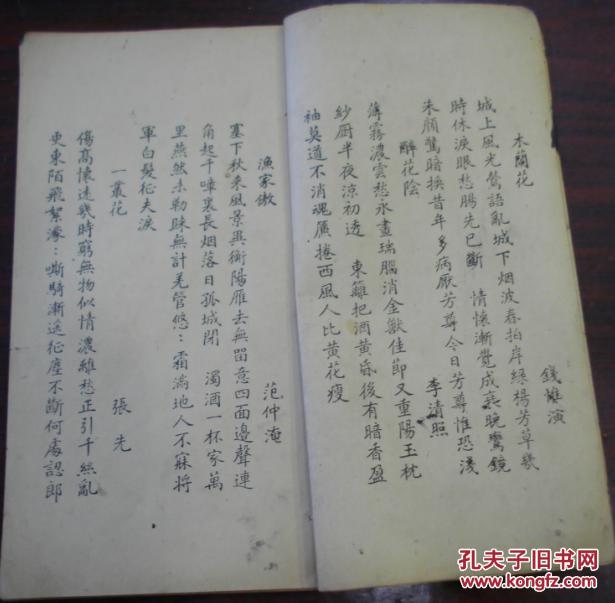 木蘭花
錢惟演
城上風光鶯語亂城下烟波春拍岸綠楊芳草幾
時休淚眼愁腸先已斷 情懷漸覺成衰晚鸞鏡
朱顏驚暗換昔年多病厭芳尊今日芳尊惟恐淺
醉花陰
李清照
薄霧濃雲愁永晝瑞腦消金獸佳節又重陽玉枕
紗厨半夜涼初透 東籬把酒黃昏後有暗香盈
袖莫道不消魂簾捲西風人比黃花瘦
漁家傲
范仲淹
塞下秋來風景異衡陽雁去無留意四面邊聲連
角起千嶂裏長烟落日孤城閉 濁酒一杯家萬
里燕然未勒歸無計羌管悠:霜滿地人不寐將
軍白髮征夫淚
一叢花
張先
傷高懷遠幾時窮無物似情濃離愁正引千絲亂
更東陌飛絮濛:嘶騎漸遙征塵不斷何處認郎
孔夫子旧书网
www.kongfz.com